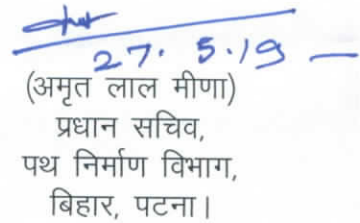 27. 5.19
(अमृत लाल मीणा)
प्रधान सचिव,
पथ निर्माण विभाग,
बिहार, पटना।